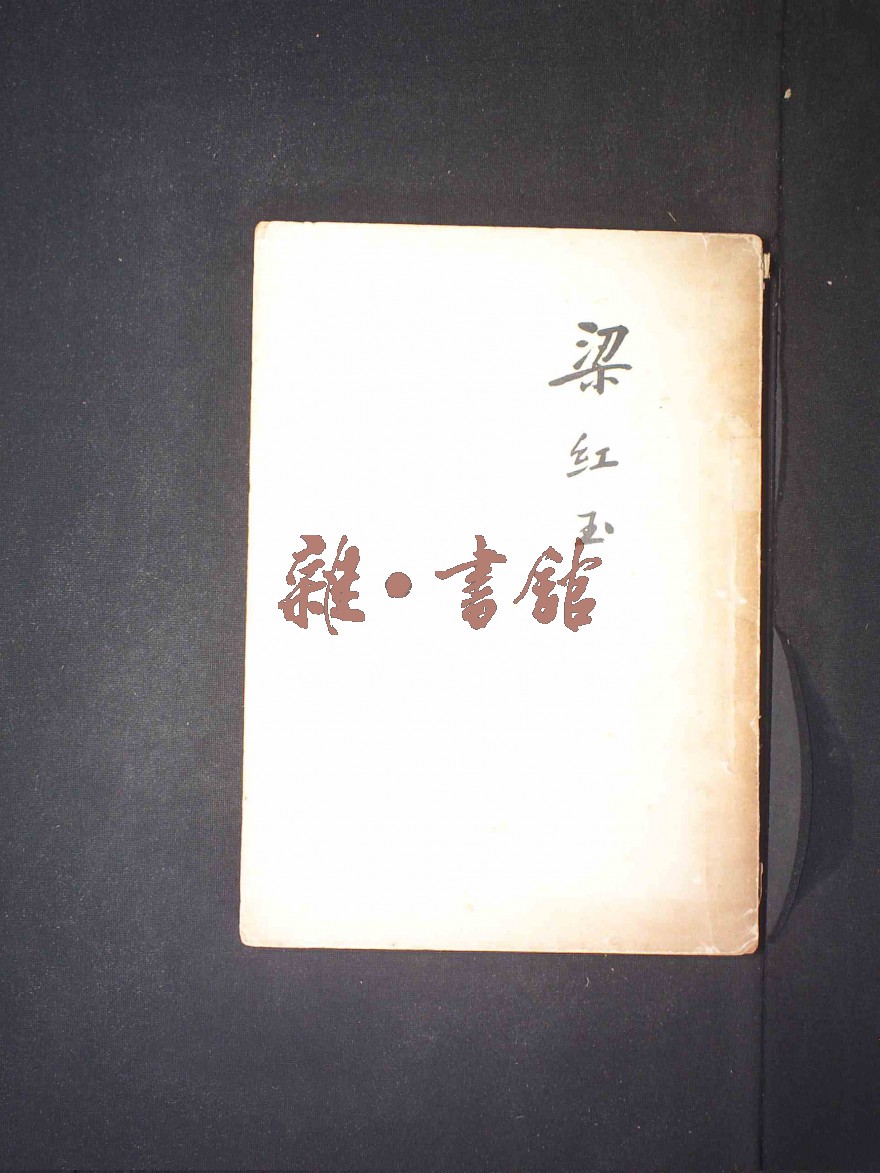 梁红玉
雜·書館